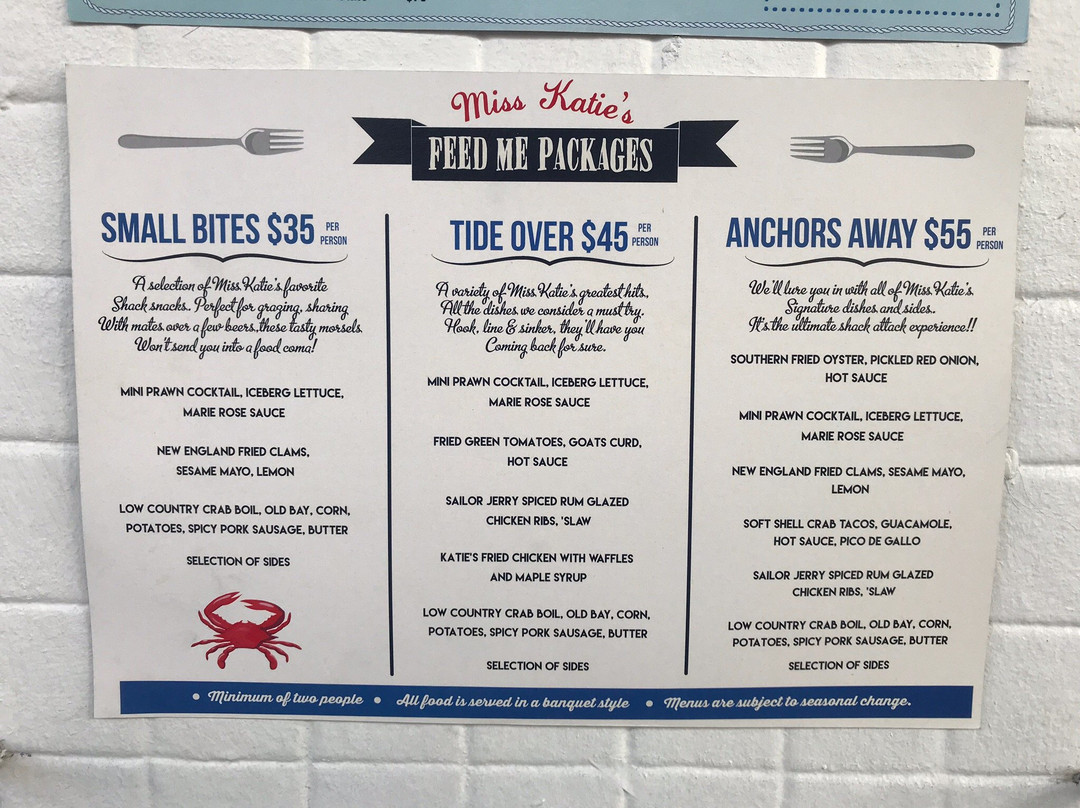 Miss Katie's
FEED ME PACKAGES
SMALL BITES $35 PER PERSON
A selection of Miss Katie's favorite
Shack snacks. Perfect for grazing, sharing
With mates over a few beers, these tasty morsels
Won't send you into a food coma!
MINI PRAWN COCKTAIL, ICEBERG LETTUCE,
MARIE ROSE SAUCE
NEW ENGLAND FRIED CLAMS,
SESAME MAYO, LEMON
LOW COUNTRY CRAB BOIL, OLD BAY, CORN,
POTATOES, SPICY PORK SAUSAGE, BUTTER
SELECTION OF SIDES
TIDE OVER $45 PER PERSON
A variety of Miss Katie's greatest hits,
All the dishes we consider a must try.
Hook, line & sinker, they'll have you
Coming back for sure.
MINI PRAWN COCKTAIL, ICEBERG LETTUCE,
MARIE ROSE SAUCE
FRIED GREEN TOMATOES, GOATS CURD,
HOT SAUCE
SAILOR JERRY SPICED RUM GLAZED
CHICKEN RIBS, 'SLAW
KATIE'S FRIED CHICKEN WITH WAFFLES
AND MAPLE SYRUP
LOW COUNTRY CRAB BOIL, OLD BAY, CORN,
POTATOES, SPICY PORK SAUSAGE, BUTTER
SELECTION OF SIDES
ANCHORS AWAY $55 PER PERSON
We'll lure you in with all of Miss Katie's
Signature dishes and sides.
It's the ultimate shack attack experience!!
SOUTHERN FRIED OYSTER, PICKLED RED ONION,
HOT SAUCE
MINI PRAWN COCKTAIL, ICEBERG LETTUCE,
MARIE ROSE SAUCE
NEW ENGLAND FRIED CLAMS, SESAME MAYO,
LEMON
SOFT SHELL CRAB TACOS, GUACAMOLE,
HOT SAUCE, PICO DE GALLO
SAILOR JERRY SPICED RUM GLAZED
CHICKEN RIBS, 'SLAW
LOW COUNTRY CRAB BOIL, OLD BAY, CORN,
POTATOES, SPICY PORK SAUSAGE, BUTTER
SELECTION OF SIDES
• Minimum of two people • All food is served in a banquet style • Menus are subject to seasonal change.